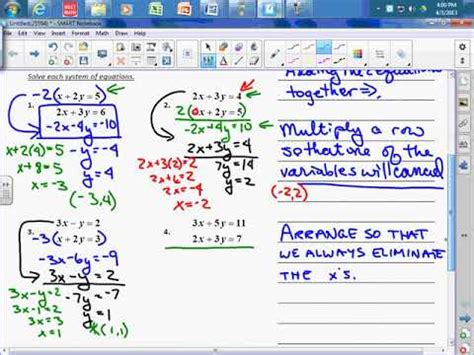 4:00 PM
4/3/2013
Untitled(5594) * - SMART Notebook
Solve each system of equations.
1.
-2(x+2y=5)
2x+3y=6
-2x-4y=-10
x+2(4)=5
-y=-4
x+8=5
y=4
x=-3
(-3,4)
2.
2x+3y=4
2(-x+2y=5)
-2x+4y=10
2x+3y=4
2x+3(2)=4
7y=14
2x+6=4
y=2
2x=-4
x=-2
(-2,2)
3.
3x-y=2
-3(x+2y=3)
-3x-6y=-9
3x-y=2
3x-y=2
-7y=-7
3x-1=2
y=1
3x=3
x=1
(1,1)
4.
3x+5y=11
2x+3y=7
together ⇒.
Multiply a row
so that one of the
variables will cancel
ARRANGE SO THAT
WE ALWAYS ELIMINATE
THE x's.